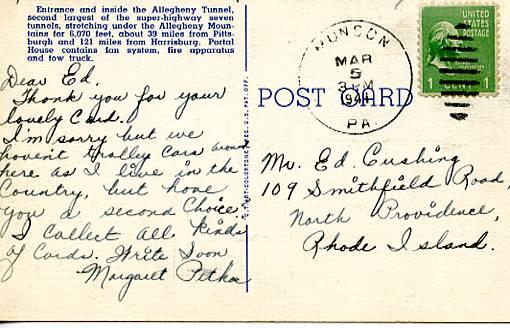 Entrance and inside the Allegheny Tunnel,
second largest of the super-highway seven
tunnels, stretching under the Allegheny Moun-
tains for 6,070 feet, about 39 miles from Pitts-
burgh and 121 miles from Harrisburg. Portal
House contains fan system, fire apparatus
and tow truck.
Dear Ed.
Thank you for your
lovely Card.
I'm sorry but we
haven't trolley cars around
here as I live in the
Country, but have
you a second Choice.
I Collect All kinds
of Cards. Write Soon
Margaret
POST CARD
MUNSON
MAR
5
3 PM
PA.
UNITED
STATES
POSTAGE
1 CENT 1
Mr. Ed. Cushing
109 Smithfield Road,
North Providence,
Rhode Island.